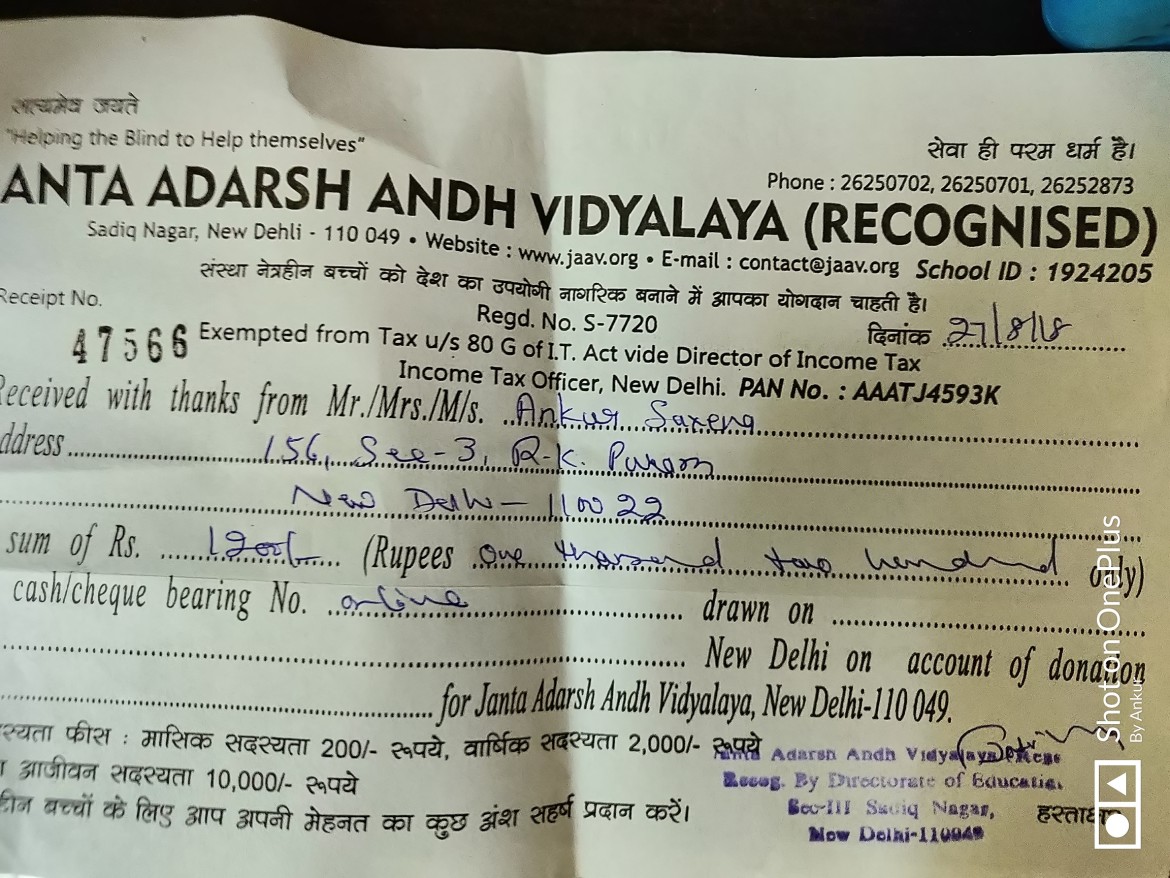 सत्यमेव जयते
"Helping the Blind to Help themselves"
सेवा ही परम धर्म है।
Phone : 26250702, 26250701, 26252873
ANTA ADARSH ANDH VIDYALAYA (RECOGNISED)
Sadiq Nagar, New Dehli - 110 049 • Website : www.jaav.org • E-mail : contact@jaav.org School ID : 1924205
संस्था नेत्रहीन बच्चों को देश का उपयोगी नागरिक बनाने में आपका योगदान चाहती है।
Receipt No.
Regd. No. S-7720
दिनांक 27/8/18
47566 Exempted from Tax u/s 80 G of I.T. Act vide Director of Income Tax
Income Tax Officer, New Delhi. PAN No. : AAATJ4593K
Received with thanks from Mr./Mrs./M/s. Ankur Saxena
ddress 156, Sec-3, R.K. Puram
New Delhi - 110022
sum of Rs. 1200/- (Rupees One thousand two hundred only)
cash/cheque bearing No. online drawn on
New Delhi on account of donation
for Janta Adarsh Andh Vidyalaya, New Delhi-110 049.
स्यता फीस : मासिक सदस्यता 200/- रूपये, वार्षिक सदस्यता 2,000/- रूपये
आजीवन सदस्यता 10,000/- रूपये
हीन बच्चों के लिए आप अपनी मेहनत का कुछ अंश सहर्ष प्रदान करें।
Adarsh Andh Vidyalaya
Recog. By Directorate of Educatio.
Sec-III Sadiq Nagar,
New Delhi-110049
हस्ताक्षर
Shot on OnePlus
By Ankur